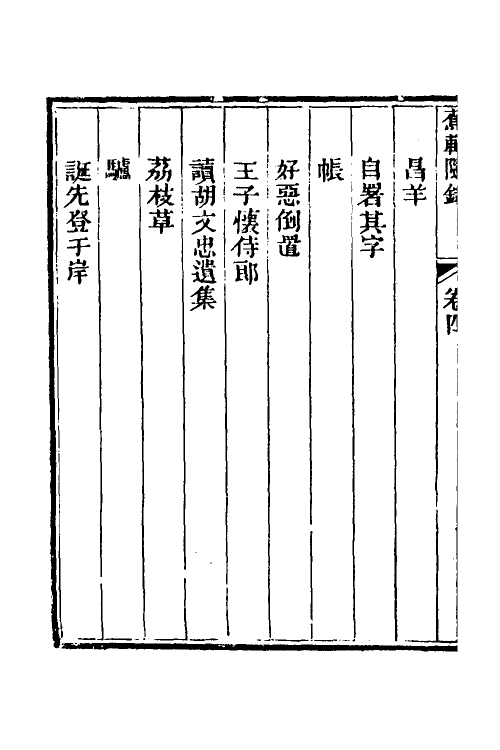 蕉軒隨錄
卷四
昌羊
自署其字
帳
好惡倒置
王子懷侍郎
讀胡文忠遺集
荔枝草
驢
誕先登于岸